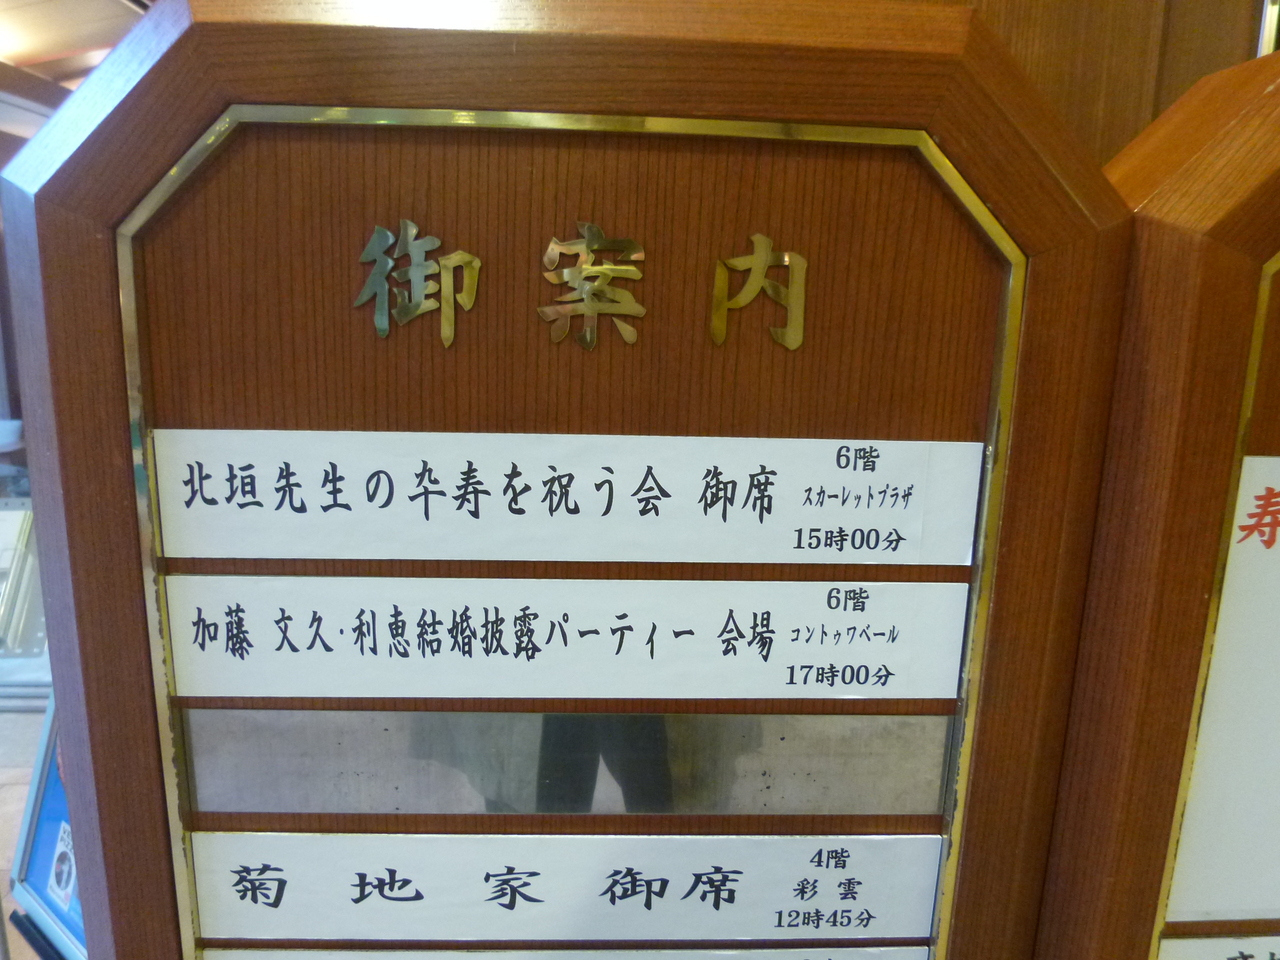 御案内
北垣先生の卆寿を祝う会 御席
6階
スカーレットプラザ
15時00分
加藤 文久・利恵結婚披露パーティー 会場
6階
コントゥワベール
17時00分
菊地家 御席
4階
彩雲
12時45分
寿